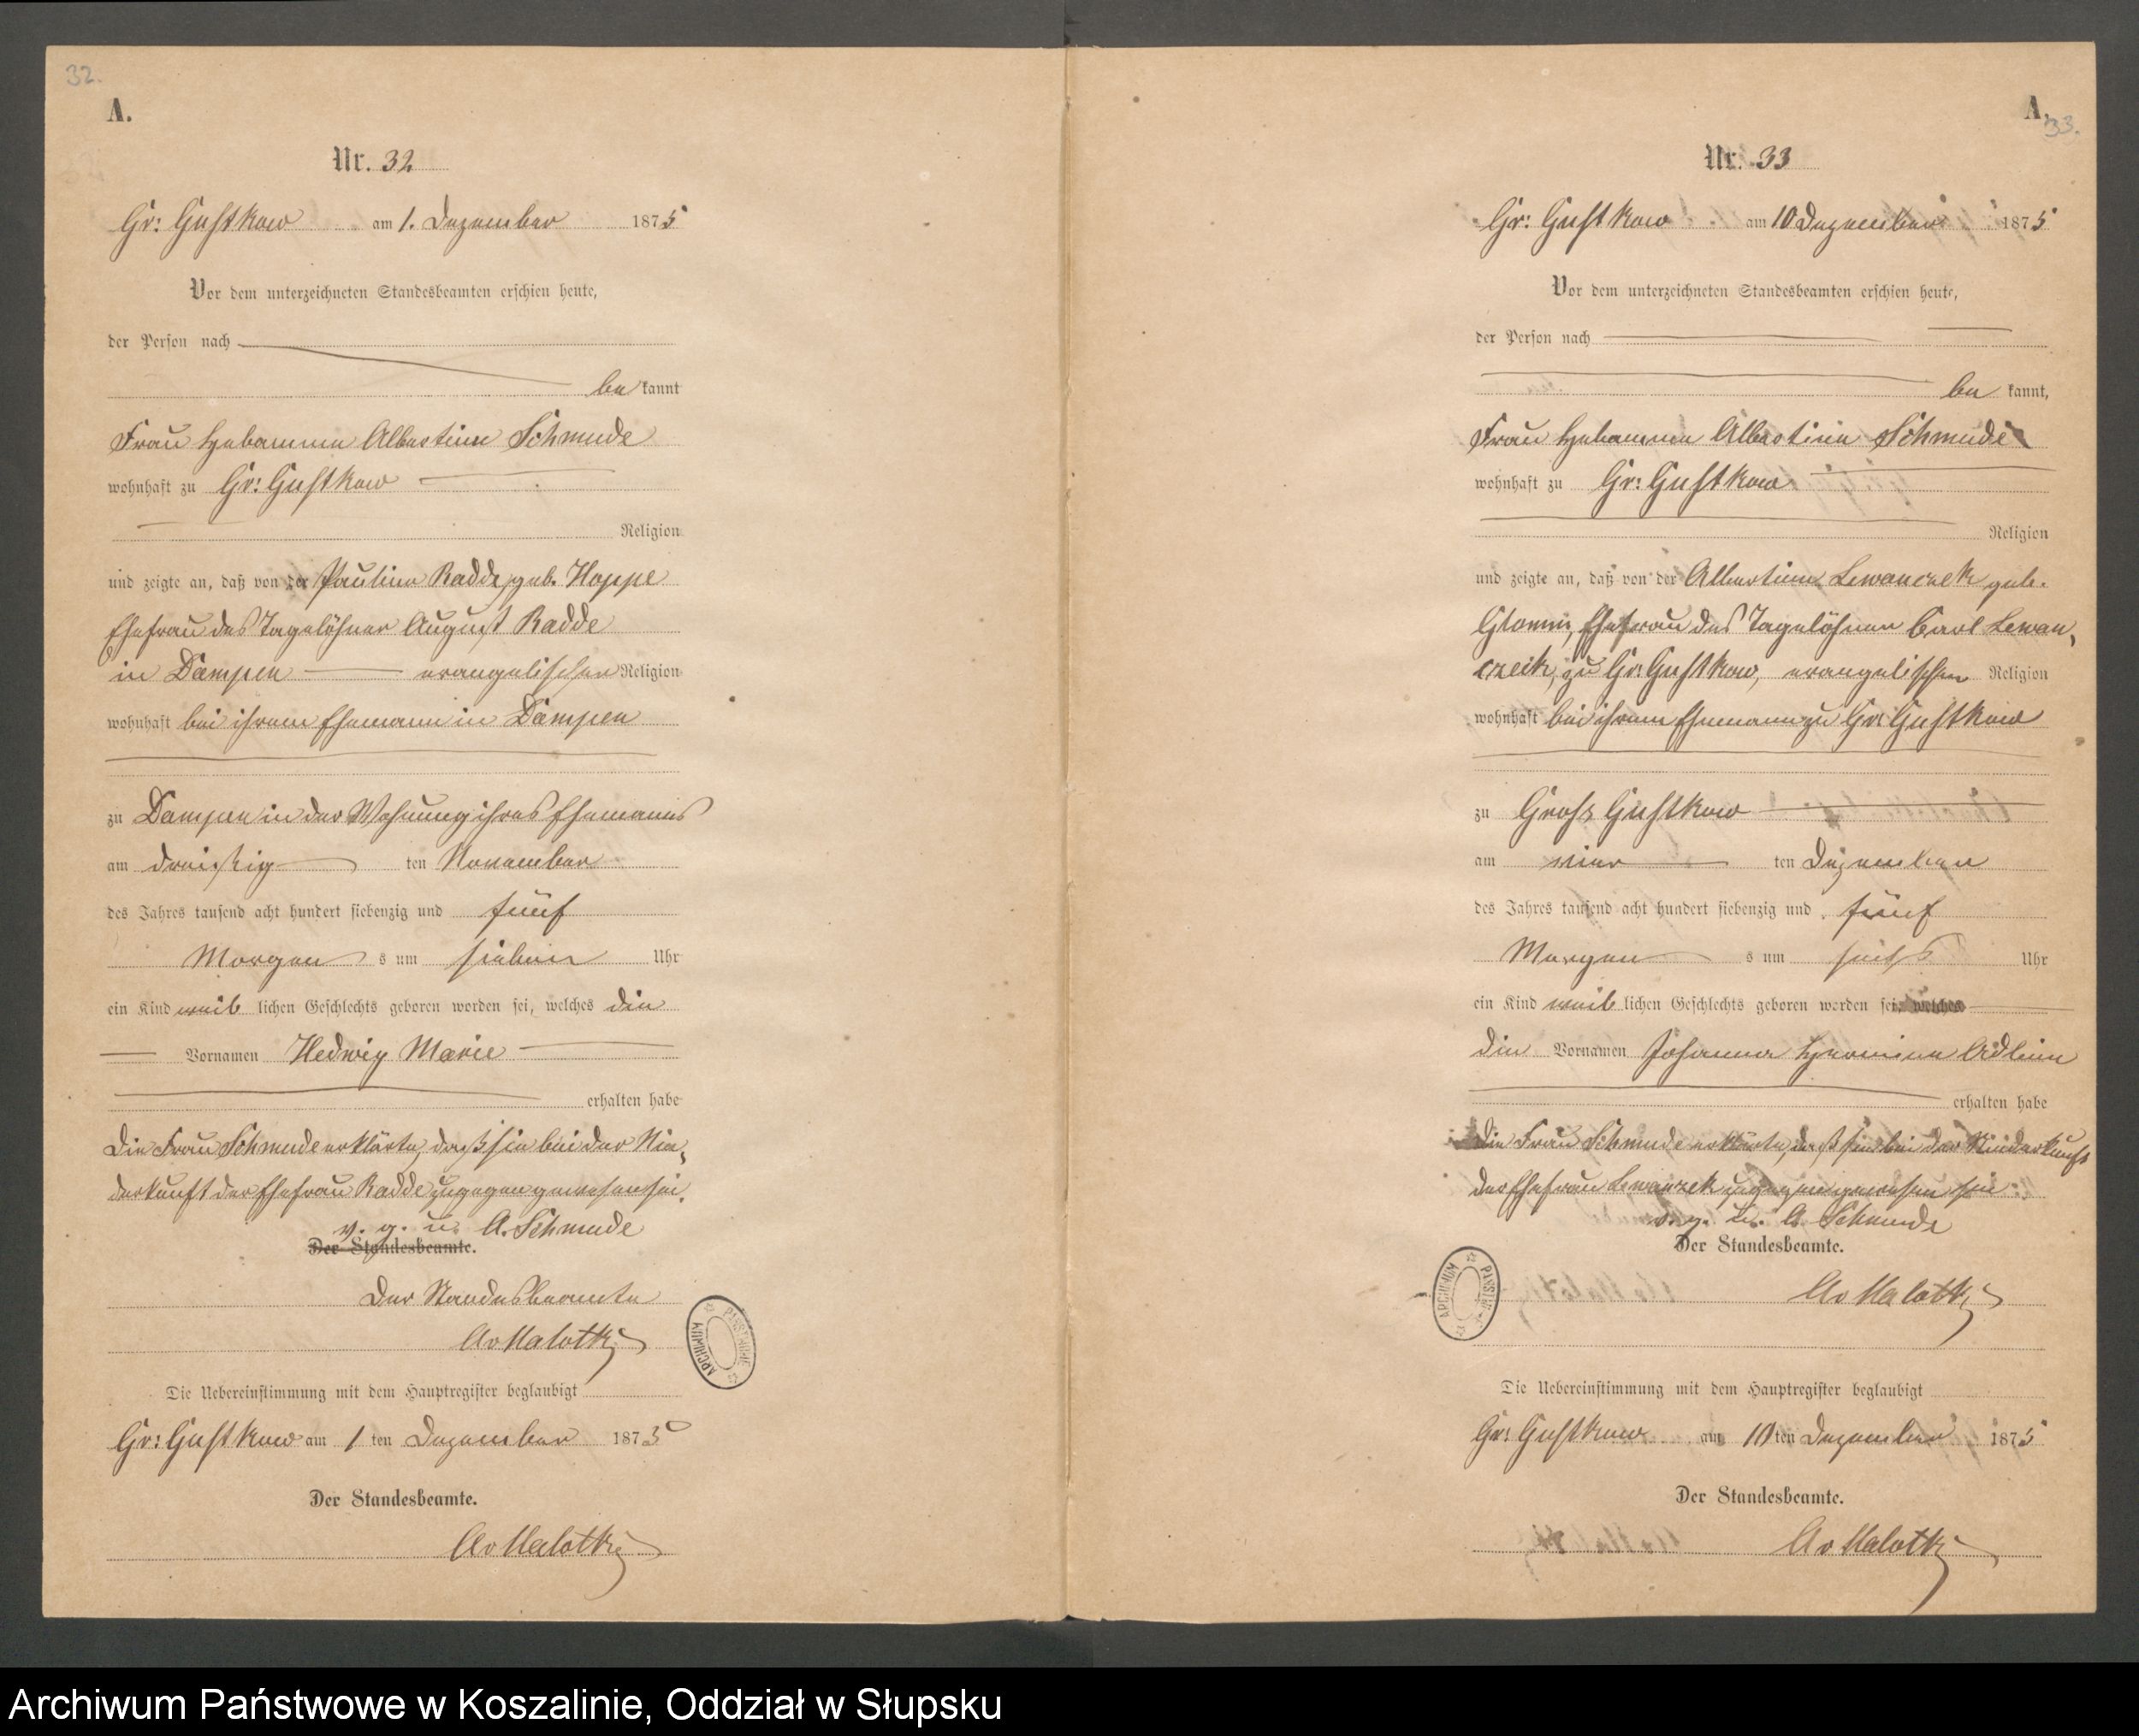 32.
A.
Nr. 32
Gr: Gustkow am 1. Dezember 1875
Vor dem unterzeichneten Standesbeamten erschien heute,
der Person nach
be kannt
Frau Hebamme Albertine Schmude
wohnhaft zu Gr: Gustkow
Religion
und zeigte an, daß von der Pauline Radde, geb. Hoppe
Ehefrau des Tagelöhner August Radde
in Dampen evangelischer Religion
wohnhaft bei ihrem Ehemann in Dampen
zu Dampen in der Wohnung ihres Ehemanns
am dreißig ten November
des Jahres tausend acht hundert siebenzig und fünf
Morgen s um sieben Uhr
ein Kind weib lichen Geschlechts geboren worden sei, welches die
Vornamen Hedwig Marie
erhalten habe
Die Frau Schmude erklärte, daß sie bei der Nie-
derkunft der Ehefrau Radde zugegen gewesen sei.
v. g. u. A. Schmude
Der Standesbeamte.
Der Standesbeamte
Av Malottki
ARCHIWUM PAŃSTWOWE
Die Uebereinstimmung mit dem Hauptregister beglaubigt
Gr: Gustkow am 1 ten Dezember 1875
Der Standesbeamte.
Av Malottki
A.
33.
Nr. 33
Gr: Gustkow am 10 Dezember 1875
Vor dem unterzeichneten Standesbeamten erschien heute,
der Person nach
be kannt,
Frau Hebamme Albertine Schmude
wohnhaft zu Gr: Gustkow
Religion
und zeigte an, daß von der Albertine Lewanczek geb.
Ehefrau des Tagelöhner Carl Lewan-
czeck, zu Gr: Gustkow, evangelischen Religion
wohnhaft bei ihrem Ehemann zu Gr: Gustkow
zu Groß Gustkow
am vier ten Dezember
des Jahres tausend acht hundert siebenzig und fünf
Morgen s um sechs Uhr
ein Kind weib lichen Geschlechts geboren worden sei, welches
die Vornamen Johanna Hermine Adline
erhalten habe
Die Frau Schmude erklärte, daß sie bei der Niederkunft
der Ehefrau Lewanzek zugegen gewesen sei
v. g. u. A Schmude
Der Standesbeamte.
Av Malottki
ARCHIWUM PAŃSTW
Die Uebereinstimmung mit dem Hauptregister beglaubigt
Gr: Gustkow am 10 ten Dezember 1875
Der Standesbeamte.
Av Malottki
Archiwum Państwowe w Koszalinie, Oddział w Słupsku